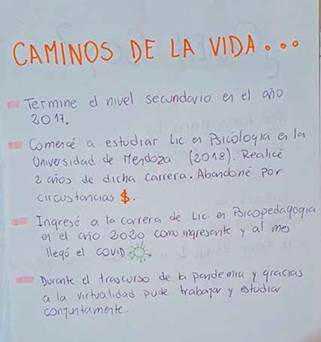 CAMINOS DE LA VIDA...
Termine el nivel secundario en el año
2017.
Comencé a estudiar Lic en Psicología en la
Universidad de Mendoza (2018). Realicé
2 años de dicha carrera. Abandoné por
circustancias $.
Ingresé a la carrera de Lic en Psicopedagogía
en el año 2020 como ingresante y al mes
llegó el COVID
Durante el trascurso de la pandemia y gracias
a la virtualidad pude trabajar y estudiar
conjuntamente.